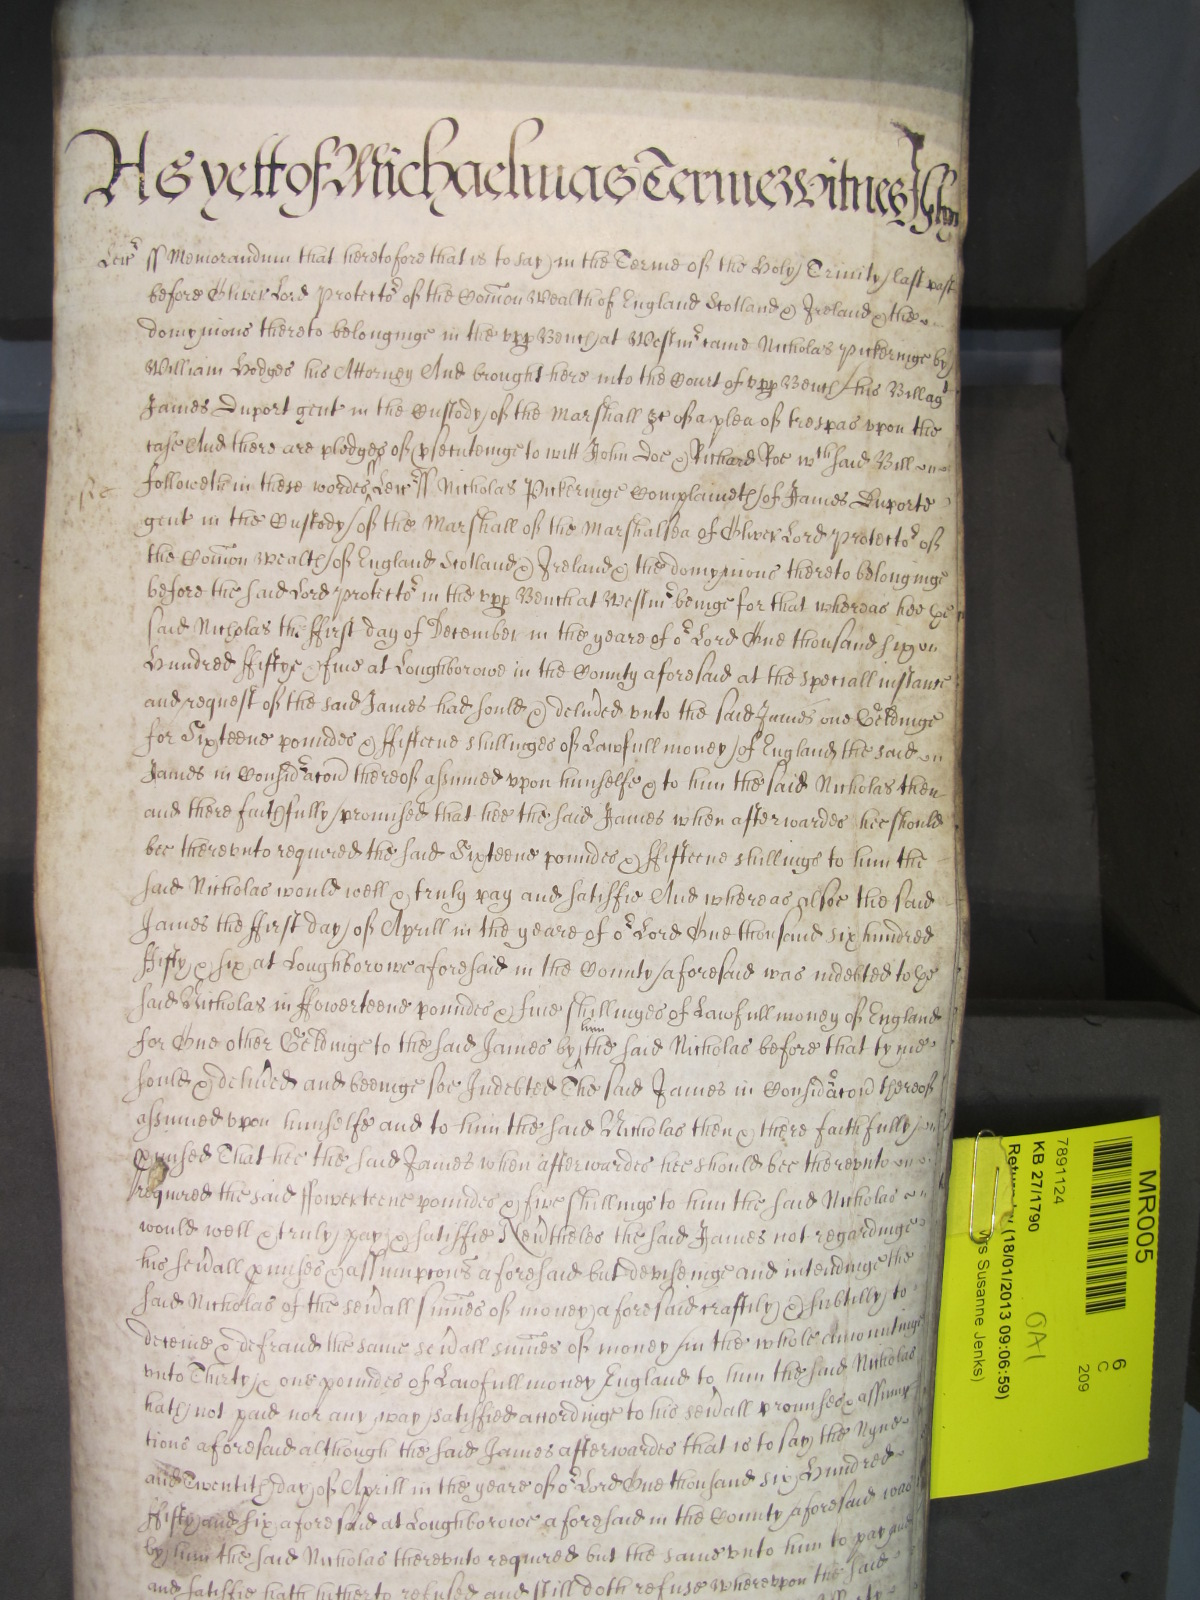 As yett of Michaelmas Terme Witnes
Leic~r ss Memorandum that heretofore that is to say in the Terme of the Holy Trinity last past
before Oliver Lord Protecto~r of the Com~on Wealth of England Scotland & Ireland & the
domynions thereto belonginge in the upp Bench at Westm~r came Nicholas Pickeringe by
William Hodges his Attorney And brought here into the Court of upp Bench his Bill ag~t
James Duport gent in the Custody of the Marshall &c of a plea of trespas upon the
case And there are pledges of p~secuteinge to witt John Doe & Richard Roe w~ch said Bill
followeth in these wordes Leic~r ss Nicholas Pickeringe Complaineth of James Duporte
gent in the Custody of the Marshall of the Marshalsea of Oliver Lord Protecto~r of
the Com~on Wealth of England Scotland & Ireland & the domynions thereto belonginge
before the said Lord Protecto~r in the upp Bench at Westm~r beinge for that whereas hee the
said Nicholas the ffirst day of December in the yeare of o~r Lord One thousand six
Hundred ffiftye & five at Loughborowe in the County aforesaid at the speciall instance
and request of the said James had sould & deliv~ed unto the said James one Geldinge
for Sixteene poundes & ffifteene shillinges of Lawfull money of England the said
James in Consid~acon thereof assumed upon himselfe & to him the said Nicholas then
and there faithfully promised that hee the said James when afterwardes hee should
bee thereunto required the said Sixteene poundes & ffifteene shillings to him the
said Nicholas would well & truly pay and satisfie And whereas alsoe the said
James the ffirst day of Aprill in the yeare of o~r Lord One thousand six hundred
ffifty & six at Loughborowe aforesaid in the County aforesaid was indebted to the
said Nicholas in ffowerteene poundes & five shillinges of Lawfull money of England
for One other Geldinge to the said James by him the said Nicholas before that tyme
sould & deliv~ed and beeinge soe Indebted The said James in Consid~acon thereof
assumed upon himselfe and to him the said Nicholas then & there faithfully
p~mised That hee the said James when afterwardes hee should bee thereunto
required the said ffowerteene poundes & five shillings to him the said Nicholas
would well & truly pay & satisfie Nev~theles the said James not regardinge
his sev~all p~mises & assumptions aforesaid but deviseinge and intendinge the
said Nicholas of the sev~all sum~es of money aforesaid craftily & subtilly to
deceive & defraud the same sev~all sum~es of money in the whole amountinge
unto Thirty & one poundes of Lawfull money England to him the said Nicholas
hath not paid nor any way satisfied accordinge to his sev~all promises & assump
tions aforesaid although the said James afterwardes that is to say the Nyne
and Twentith day of Aprill in the yeare of o~r Lord One thousand six Hundred
ffifty and six aforesaid at Loughborowe aforesaid in the County aforesaid was
by him the said Nicholas thereunto required but the same unto him to pay and
and satisfie hath hitherto refused and still doth refuse whereupon the said
MR005
6
C
209
7891124
KB 27/1790
OA1
Return by (18/01/2013 09:06:59)
Ms Susanne Jenks)